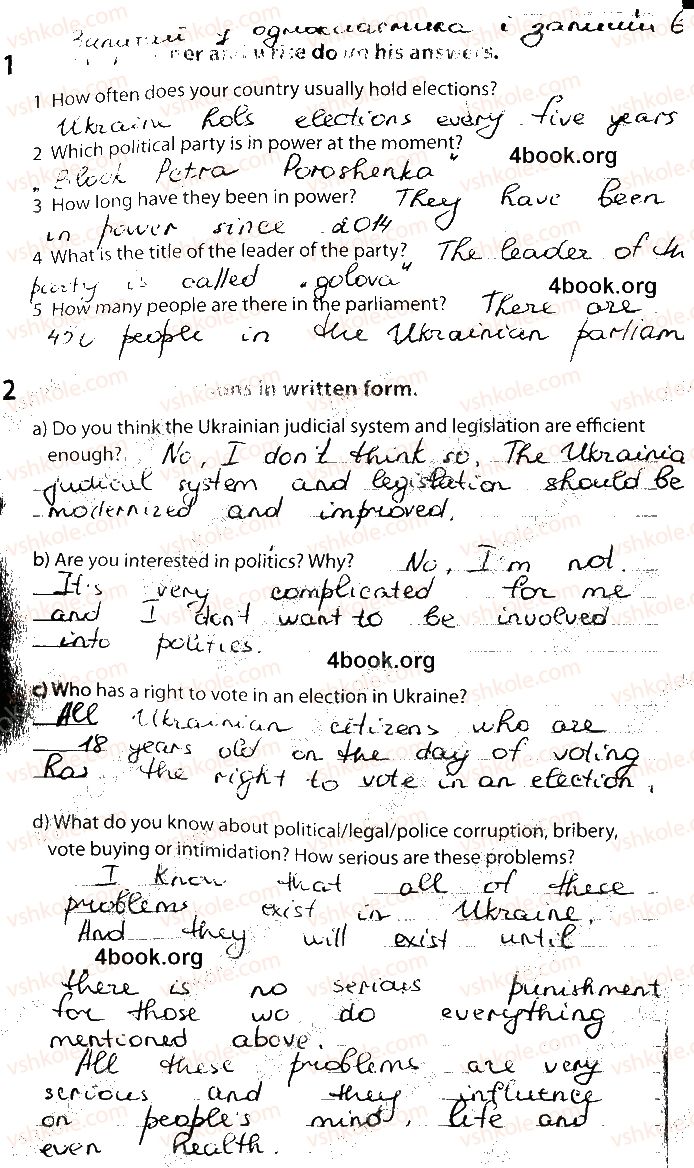 Запитай у однокласника і запиши
1
er and write down his answers.
1 How often does your country usually hold elections?
Ukraine hols elections every five years
2 Which political party is in power at the moment?
4book.org
„Block Petra Poroshenka"
3 How long have they been in power? They have been
in power since 2014
4 What is the title of the leader of the party? The leader of th
party is called „golova"
4book.org
5 How many people are there in the parliament? There are
450 people in the Ukrainian parliam
2
ons in written form.
a) Do you think the Ukrainian judicial system and legislation are efficient
enough? No, I don't think so. The Ukrainia
judical system and legislation should be
modernized and improved.
b) Are you interested in politics? Why? No, I'm not.
It's very complicated for me
and I don't want to be involved
into politics.
4book.org
c) Who has a right to vote in an election in Ukraine?
All Ukrainian citizens who are
18 years old on the day of voting
has the right to vote in an election.
d) What do you know about political/legal/police corruption, bribery,
vote buying or intimidation? How serious are these problems?
I know that all of these
problems exist in Ukraine.
And they will exist until
4book.org
there is no serious punishment
for those wo do everything
mentioned above.
All these problems are very
serious and they influence
on people's mind, life and
even health.